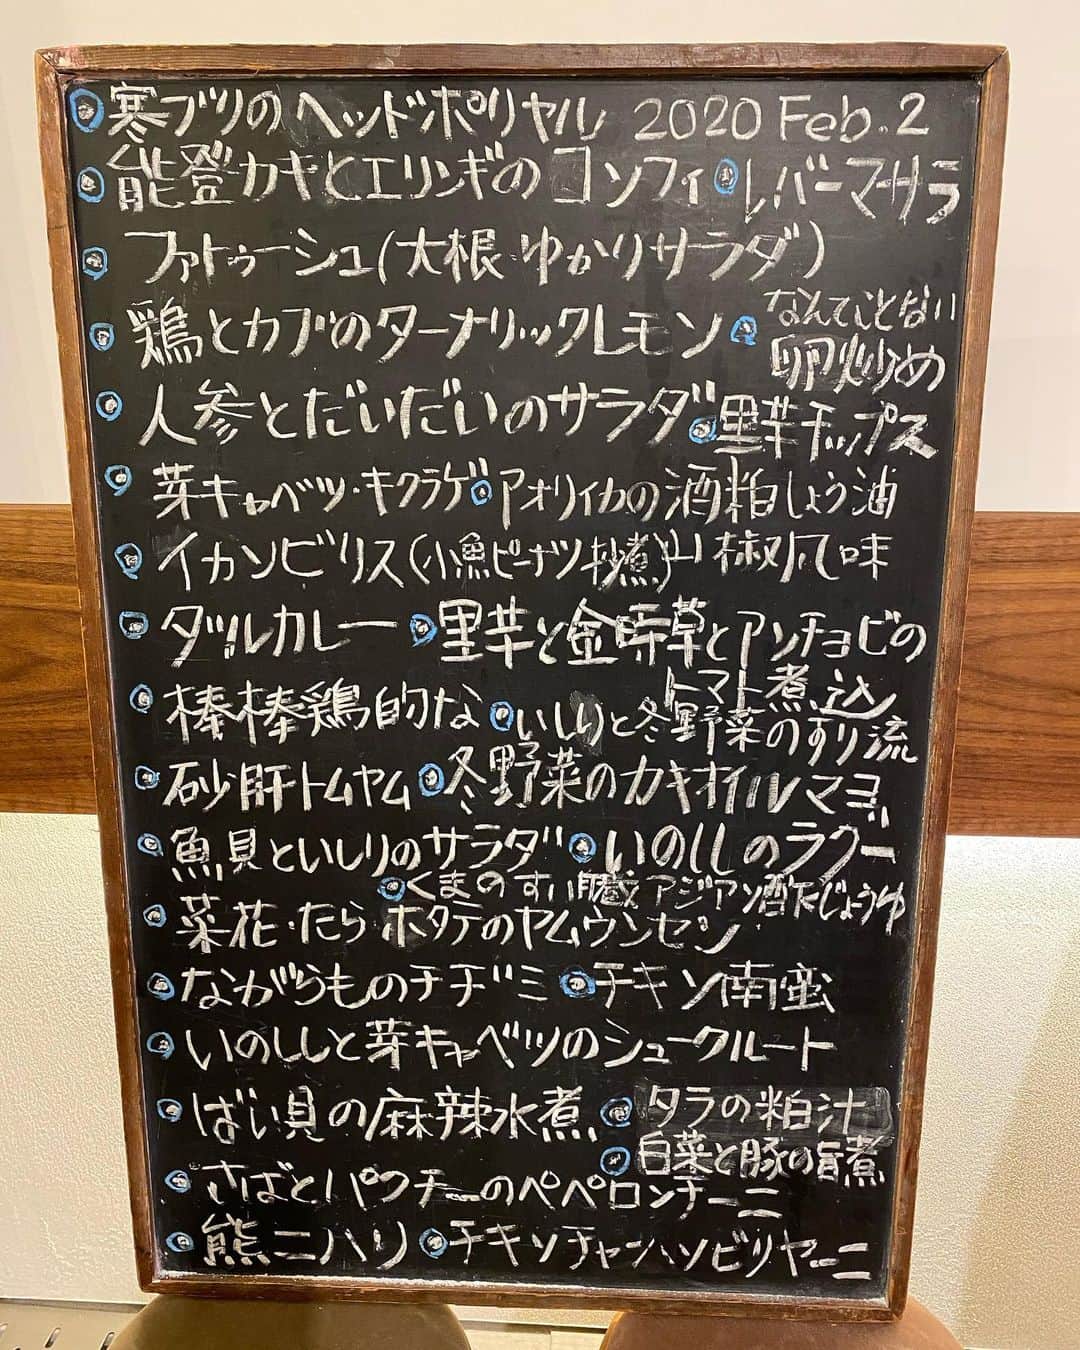 寒ブリのヘッドポリヤル 2020 Feb.2
能登カキとエリンギのコンフィ レバーマサラ
ファトゥーシュ(大根・ゆかりサラダ)
鶏とカブのターナリックレモン なんてことない
卵炒め
人参とだいだいのサラダ 里芋チップス
芽キャベツ・キクラゲ アオリイカの酒粕しょう油
イカンビリス(小魚ピーナツ炒煮)山椒風味
ダールカレー 里芋と金時草とアンチョビの
トマト煮込
棒棒鶏的な いしりと冬野菜のすり流
砂肝トムヤム 冬野菜のカキオイルマヨ
魚貝といしりのサラダ いのししのラグー
くまのすい臓アジアン酢じょうゆ
菜花・たらホタテのヤムウンセン
ながらものチヂミ チキン南蛮
いのししと芽キャベツのシュークルート
ばい貝の麻辣水煮 タラの粕汁
白菜と豚の旨煮
さばとパクチーのペペロンチーニ
熊ニハリ チキンチャンパソビリヤーニ